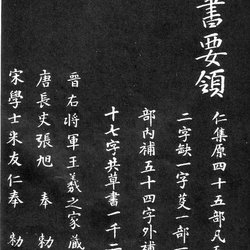 書要領
仁集原四十五部凡五
二字缺一字芟一部二
部內補五十四字外補
十七字共草書一千二
晉右將軍王羲之家藏
唐長史張旭奉勅
宋學士米友仁奉勅